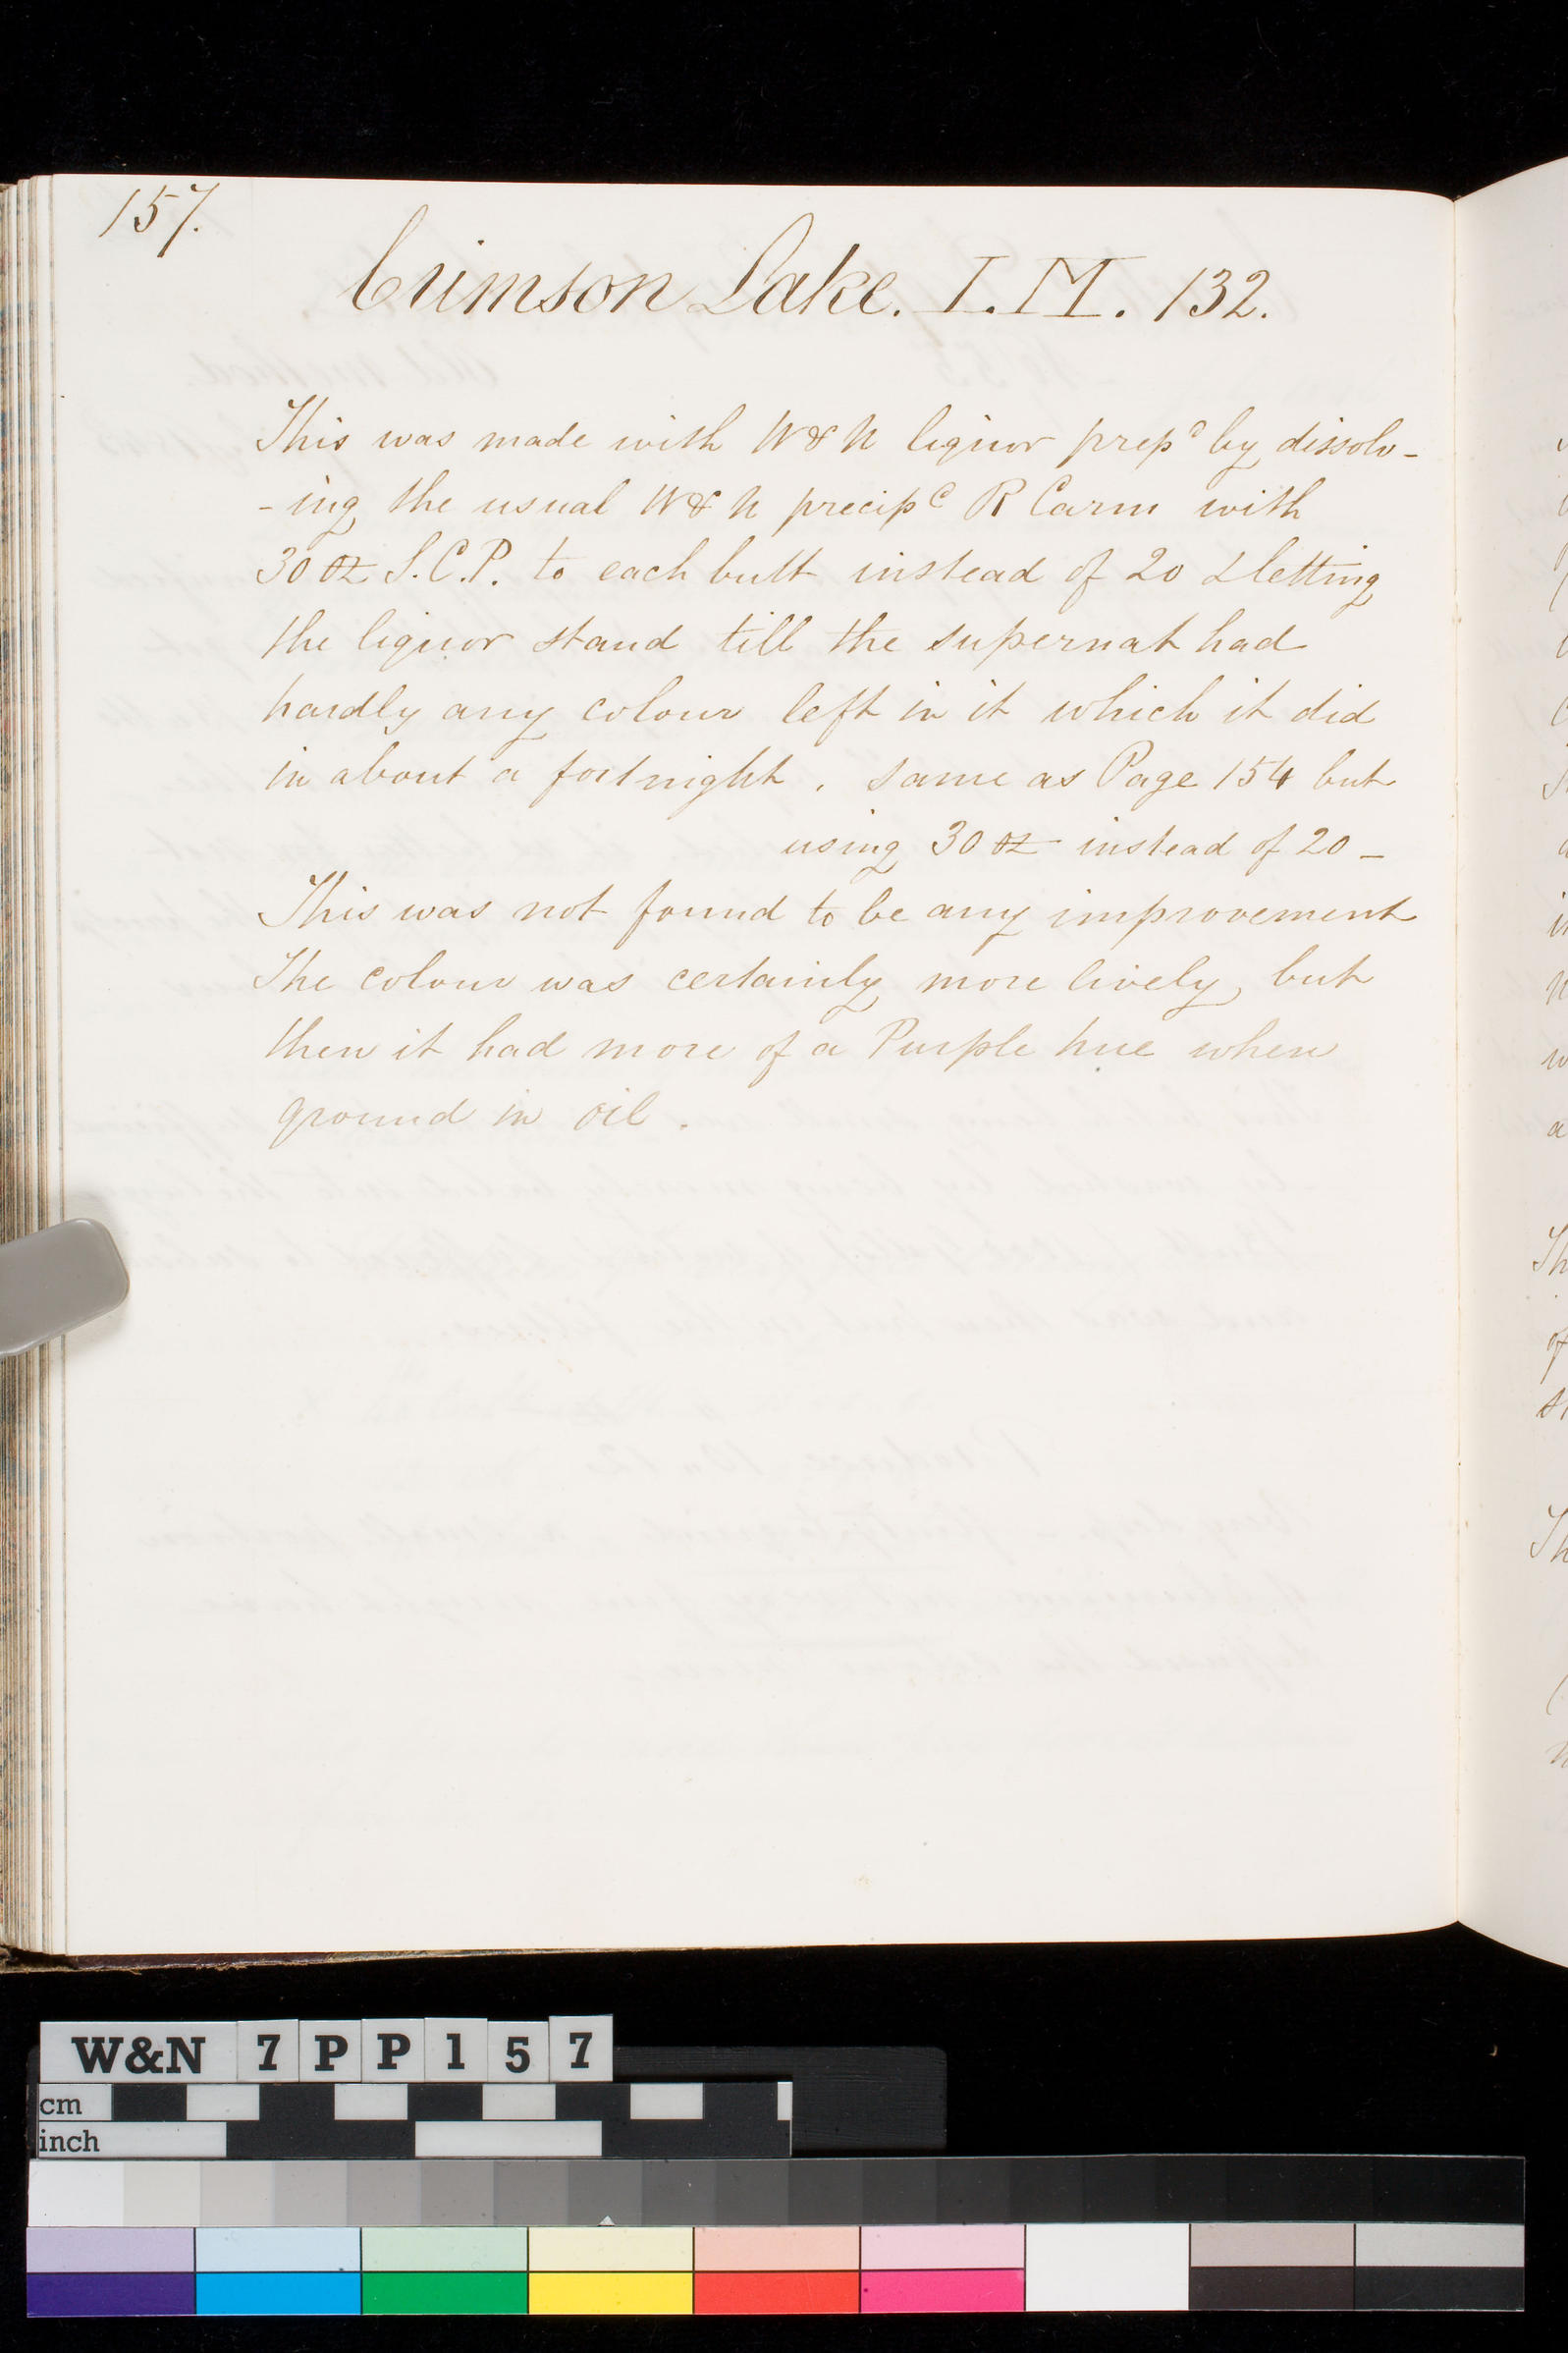 157.
Crimson Lake. I. M. 132.
This was made with W & N liquor prepd by dissolv-
-ing the usual W & N precipe R Carm with
30 oz S.C.P. to each butt instead of 20 & letting
the liquor stand till the supernat had
hardly any colour left in it which it did
in about a fortnight. Same as Page 154 but
using 30 oz instead of 20 -
This was not found to be any improvement
The colour was certainly more lively, but
then it had more of a Purple hue when
ground in oil.
W&N 7PP157
cm
inch